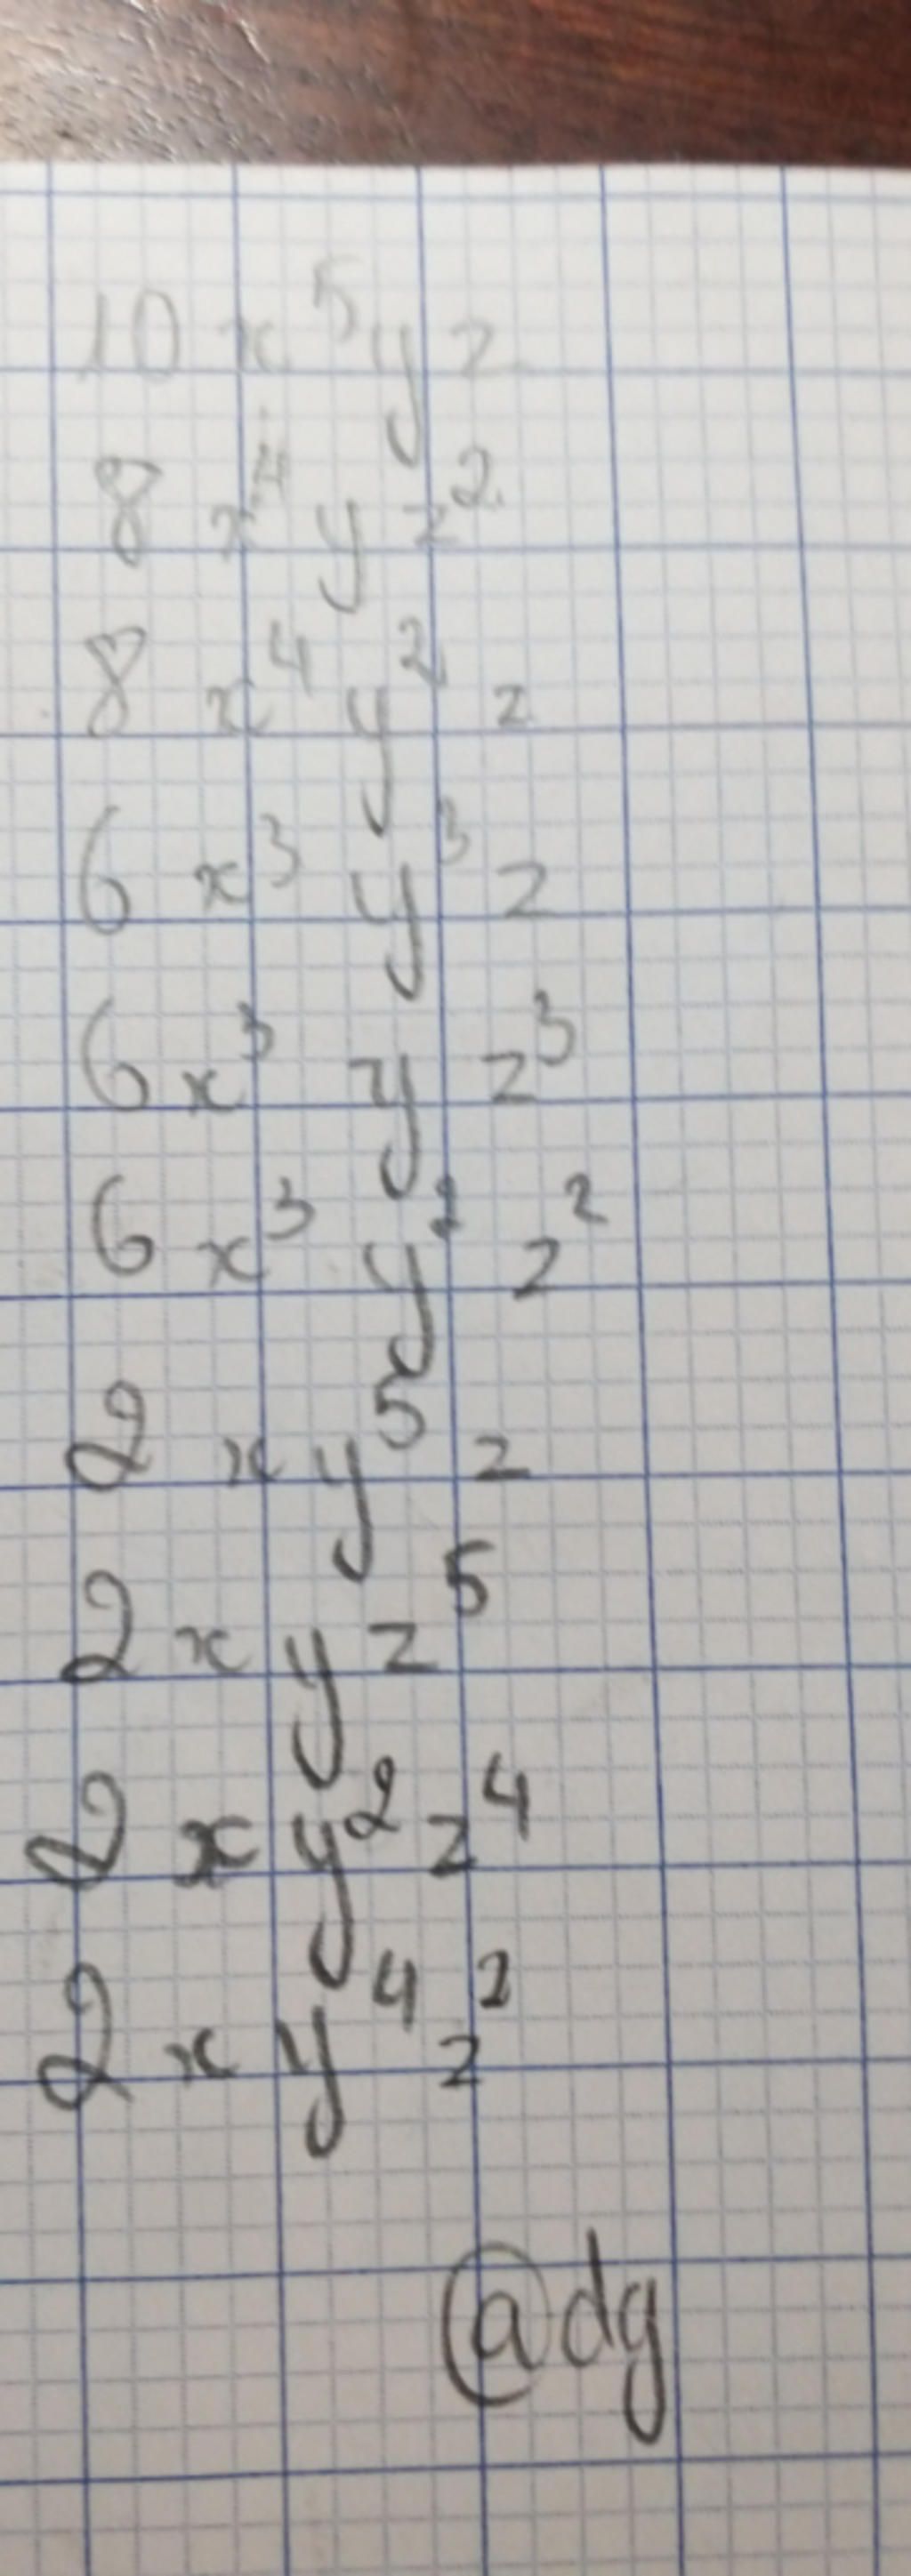 10 x⁵ y z
8 x⁴ y z²
8 x⁴ y² z
6 x³ y³ z
6 x³ y z³
6 x³ y² z²
2 x y⁵ z
2 x y z⁵
2 x y² z⁴
2 x y⁴ z²
@dg